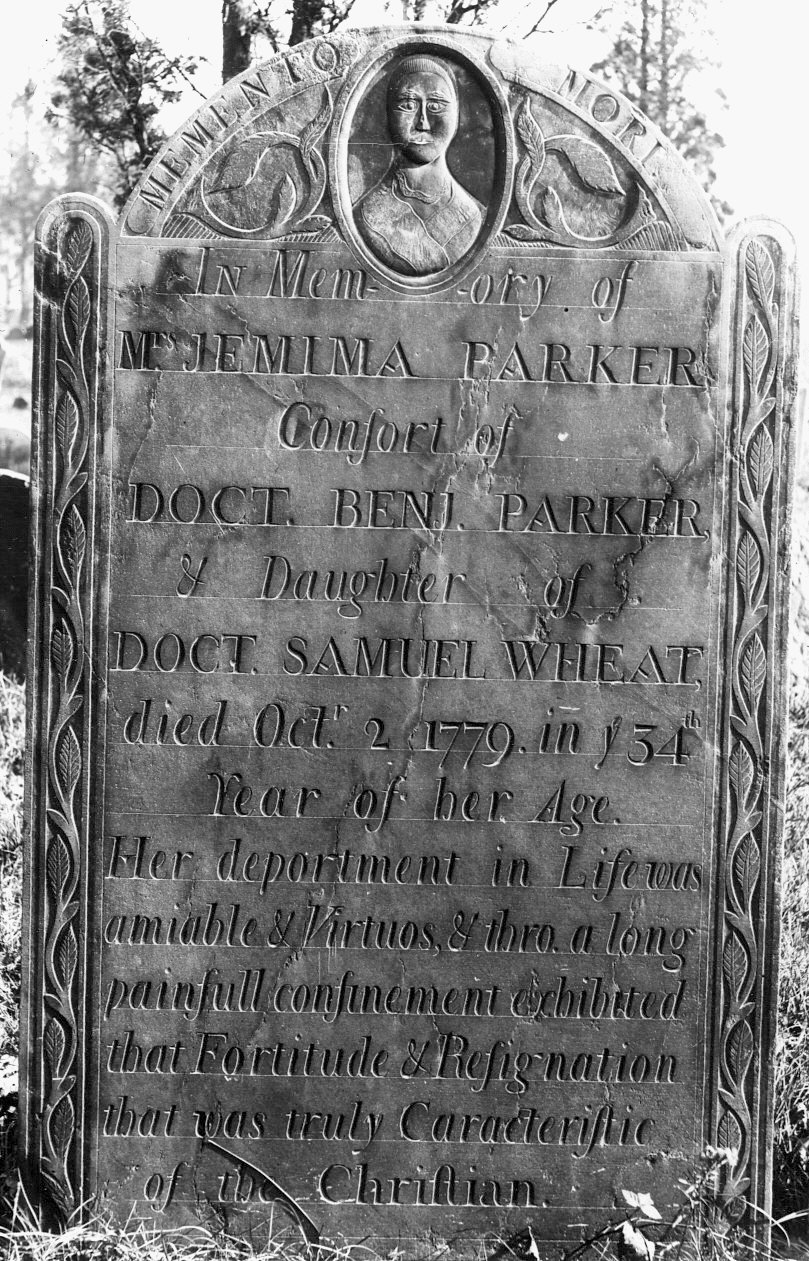 MEMENTO MORI
In Mem-ory of
Mrs. JEMIMA PARKER
Conſort of
DOCT. BENJ. PARKER,
& Daughter of
DOCT. SAMUEL WHEAT,
died Octr. 2 1779. in ye 34th
Year of her Age.
Her deportment in Life was
amiable & Virtuos, & thro. a long
painfull confinement exhibited
that Fortitude & Reſignation
that was truly Caracteriſtic
of the Chriſtian.